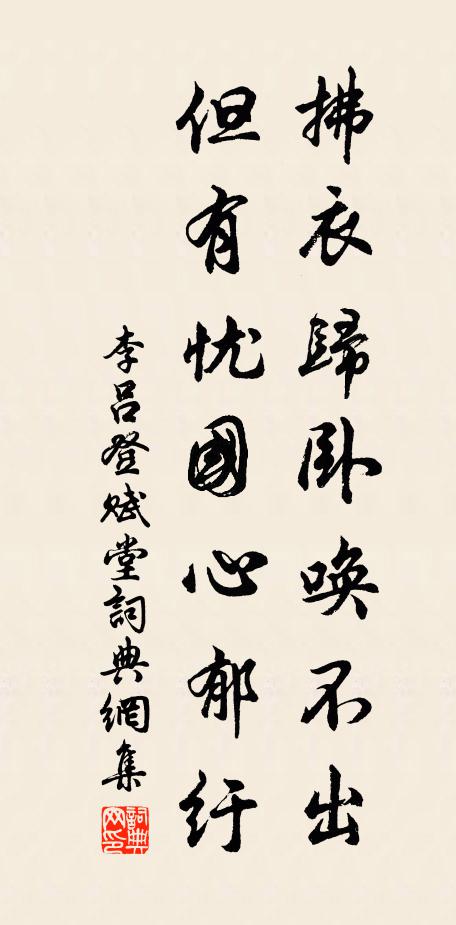 拂衣歸卧唤不出
但有忧國心郁纡
李呂登賦堂詞典網集
詞典网印